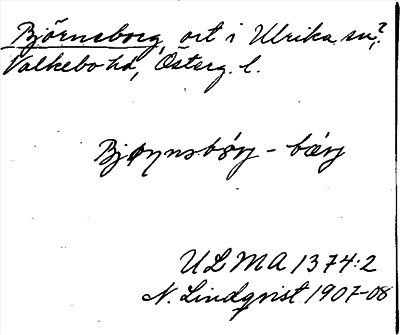 Björnsborg, ort i Ulrika sn?
Valkebo hd, Österg. l.
Bjørnsbórj - bærj
ULMA 1374:2
N. Lindqvist 1907-08